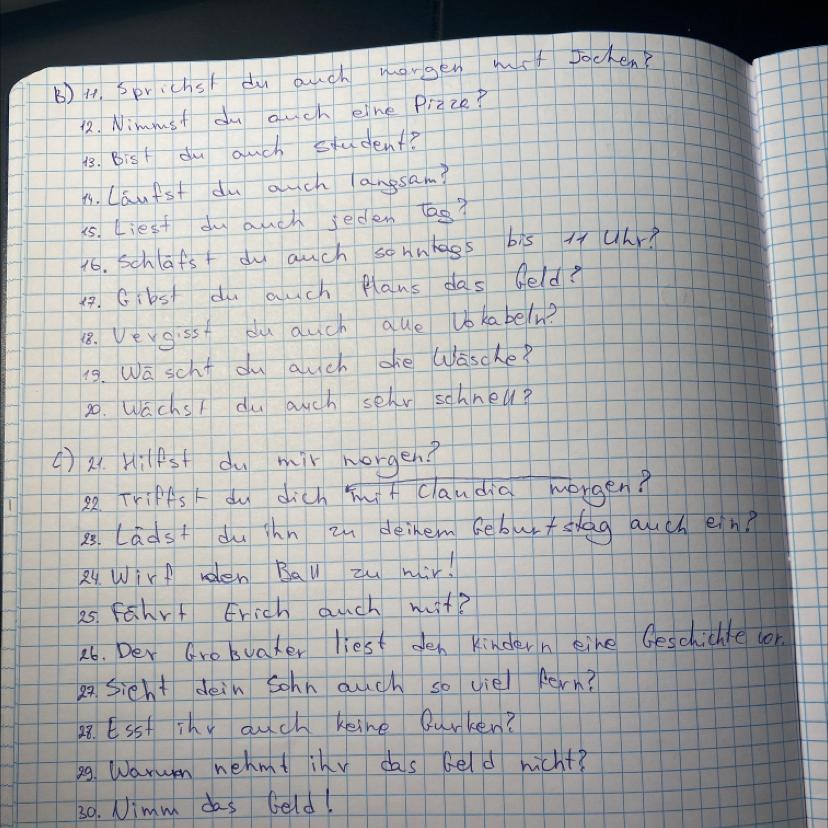 B) 11. Sprichst du auch morgen mit Jochen?
12. Nimmst du auch eine Pizza?
13. Bist du auch student?
14. Läufst du auch langsam?
15. Liest du auch jeden Tag?
16. Schläfst du auch sonntags bis 11 Uhr?
17. Gibst du auch Hans das Geld?
18. Vergisst du auch alle Vokabeln?
19. Wäscht du auch die Wäsche?
20. Wächst du auch sehr schnell?
C) 21. Hilfst du mir morgen?
22. Triffst du dich mit Claudia morgen?
23. Lädst du ihn zu deinem Geburtstag auch ein?
24. Wirf den Ball zu mir!
25. Fährt Erich auch mit?
26. Der Großvater liest den Kindern eine Geschichte vor.
27. Sieht dein Sohn auch so viel fern?
28. Esst ihr auch keine Gurken?
29. Warum nehmt ihr das Geld nicht?
30. Nimm das Geld!